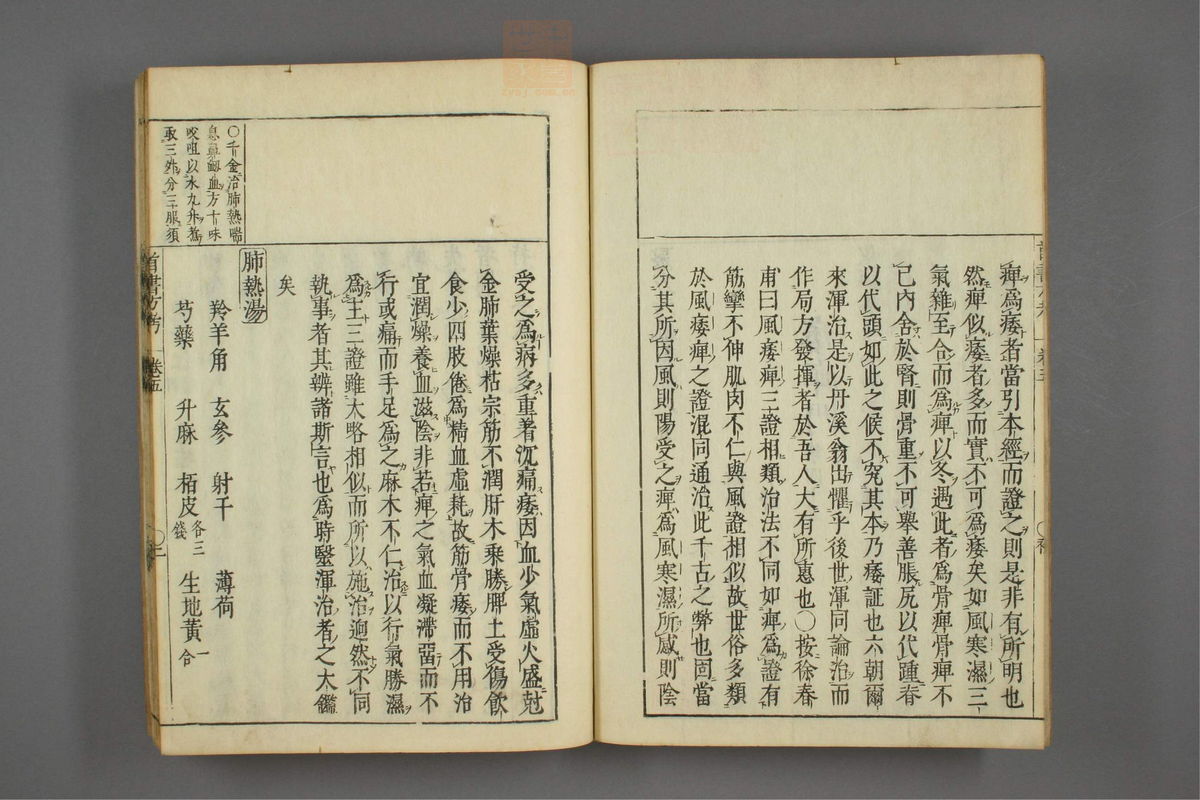 痺爲痿者當引本經而證之則是非有所明也
然痺似痿者多而實不可爲痿矣如風寒濕三
氣雜至合而爲痺以冬遇此者爲骨痺骨痺不
已內舍於腎則骨重不可舉善脹尻以代踵脊
以代頭如此之候不究其本乃痿証也六朝爾
來渾治是以丹溪翁出懼乎後世渾同論治而
作局方發揮者於吾人大有所惠也〇按徐春
甫曰風痿痺三證相類治法不同如痺爲證有
筋攣不伸肌肉不仁與風證相似故世俗多類
於風痿痺之證混同通治此千古之弊也固當
分其所因風則陽受之痺爲風寒濕所感則陰
受之爲病多重著沉痛痿因血少氣虛火盛尅
金肺葉燥枯宗筋不潤肝木乘勝脾土受傷飲
食少四肢倦爲精血虛耗故筋骨痿而不用治
宜潤燥養血滋陰非若痺之氣血凝滯留而不
行或痛而手足爲之麻木不仁治以行氣勝濕
爲主三證雖大略相似而所以施治迥然不同
執事者其辨諸斯言也爲時醫渾治者之大鑑
矣
肺熱湯
羚羊角 玄參 射干 薄荷
芍藥 升麻 栢皮各三錢 生地黃一合
〇千金治肺熱喘
息鼻衄血方十味
㕮咀以水九升煮
取三升分三服須
首書方考 卷五 〇二
zysj.com.cn